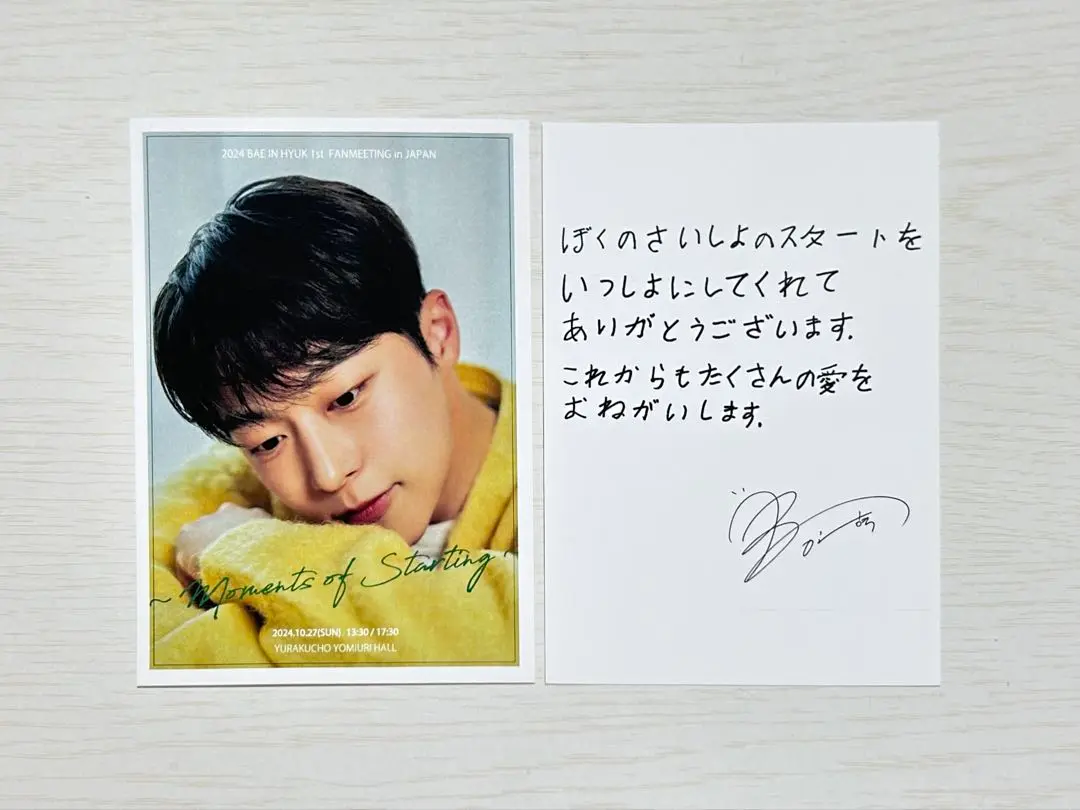 2024 BAE IN HYUK 1st FANMEETING in JAPAN
~ Moments of Starting ~
2024.10.27(SUN) 13:30 / 17:30
YURAKUCHO YOMIURI HALL
ぼくのさいしよのスタートを
いっしよにしてくれて
ありがとうございます.
これからもたくさんの愛を
おねがいします.